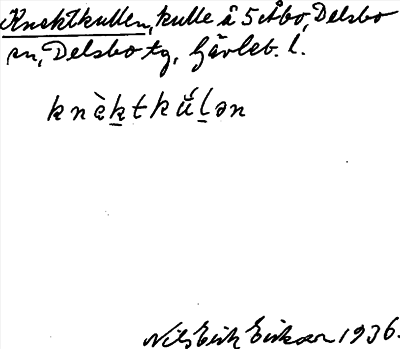 Knektkullen, kulle å 5 Åbo, Delsbo
sn, Delsbo tg, Gävleb. l.
knèktkúlən
Nils Erik Erikson 1936.